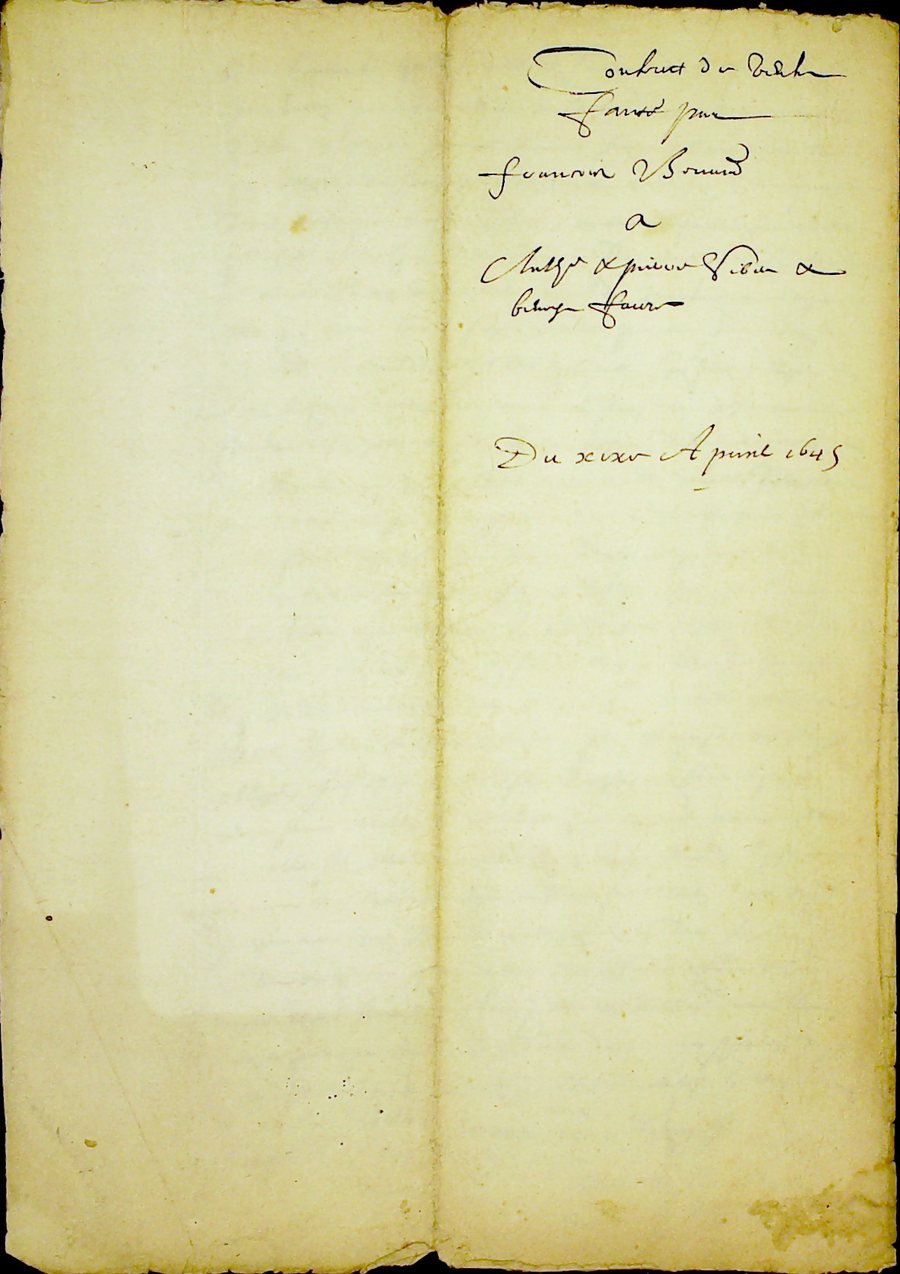 Contract de vente
faict par
francois Benard
a
Anthe & pierre Vidan &
faure
Du xixe Apvril 1645